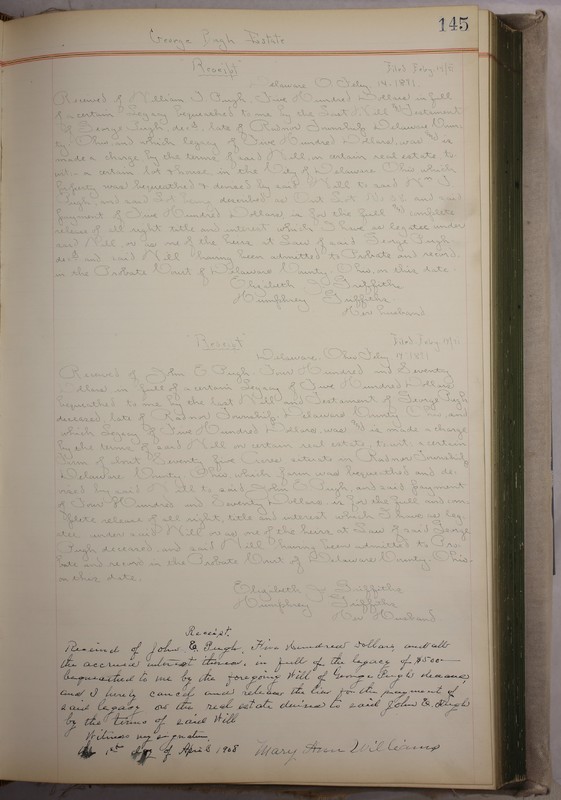 145
George Pugh Estate
"Receipt" Filed Feby 14/11
Delaware, O. Feby. 14, 1911
Received of William J. Pugh, Five Hundred Dollars in full
of a certain Legacy bequeathed to me by the Last Will & Testament
of George Pugh, dec'd, late of Radnor Township, Delaware Coun-
ty, Ohio, and which legacy of Five Hundred Dollars, was & is
made a charge by the terms of said Will, on certain real estate to
wit:- a certain lot & house, in the City of Delaware Ohio which
property was bequeathed & devised by said Will to said Wm J.
Pugh and said Lot being described as Out Lot and said
payment of Five Hundred Dollars is for the full & complete
release of all right title and interest which I have as legatee under
said Will, or as one of the heirs at Law of said George Pugh,
dec'd and said Will having been admitted to Probate and record,
in the Probate Court of Delaware County, Ohio, on this date.
Elizabeth J. Griffiths
Humphrey Griffiths
Her husband
"Receipt" Filed Feby 14/11
Delaware, Ohio Feby 14, 1911
Received of John E. Pugh, Four Hundred and Seventy
Dollars, in full of a certain Legacy of Five Hundred Dollars
bequeathed to me by the Last Will and Testament of George Pugh
deceased, late of Radnor Township, Delaware County, Ohio, and
which Legacy of Five Hundred Dollars, was & is made a charge
by the terms of said Will on certain real estate, to wit: a certain
farm of about Seventy five Acres situate in Radnor Township,
Delaware County, Ohio, which farm was bequeathed and de-
vised by said Will to said John E. Pugh, and said payment
of Four Hundred and Seventy Dollars is for the full and com-
plete release of all right, title and interest which I have as leg-
atee under said Will or as one of the heirs at Law of said George
Pugh deceased, and said Will having been admitted to Pro-
bate and record in the Probate Court of Delaware County, Ohio.
on this date.
Elizabeth J. Griffiths
Humphrey Griffiths
Her Husband
Receipt.
Received of John E. Pugh, Five Hundred Dollars, and all
the accrued interest thereon, in full of the legacy of $500—
bequeathed to me by the foregoing Will of George Pugh deceased,
and I hereby cancel and release the lien for the payment of
said legacy on the real estate devised to said John E. Pugh
by the terms of said Will
Witness my signature
1st day of April 1908 Mary Ann Williams